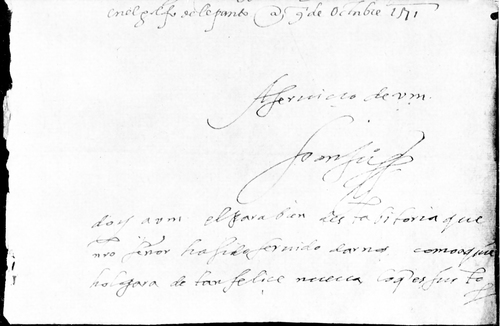 en el golfo de lepanto a 9 de Octubre 1571
A servicio de v.m.
doy a vm el parabien desta vitoria que
nro señor ha sido servido darnos como
holgara de tan felice nueva